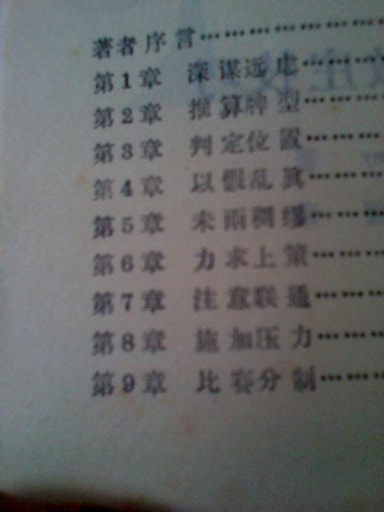 著者序言………………
第1章 深谋远虑………
第2章 推算牌型………
第3章 判定位置………
第4章 以假乱真………
第5章 未雨稠缪………
第6章 力求上策………
第7章 注意联通………
第8章 施加压力………
第9章 比赛分制………